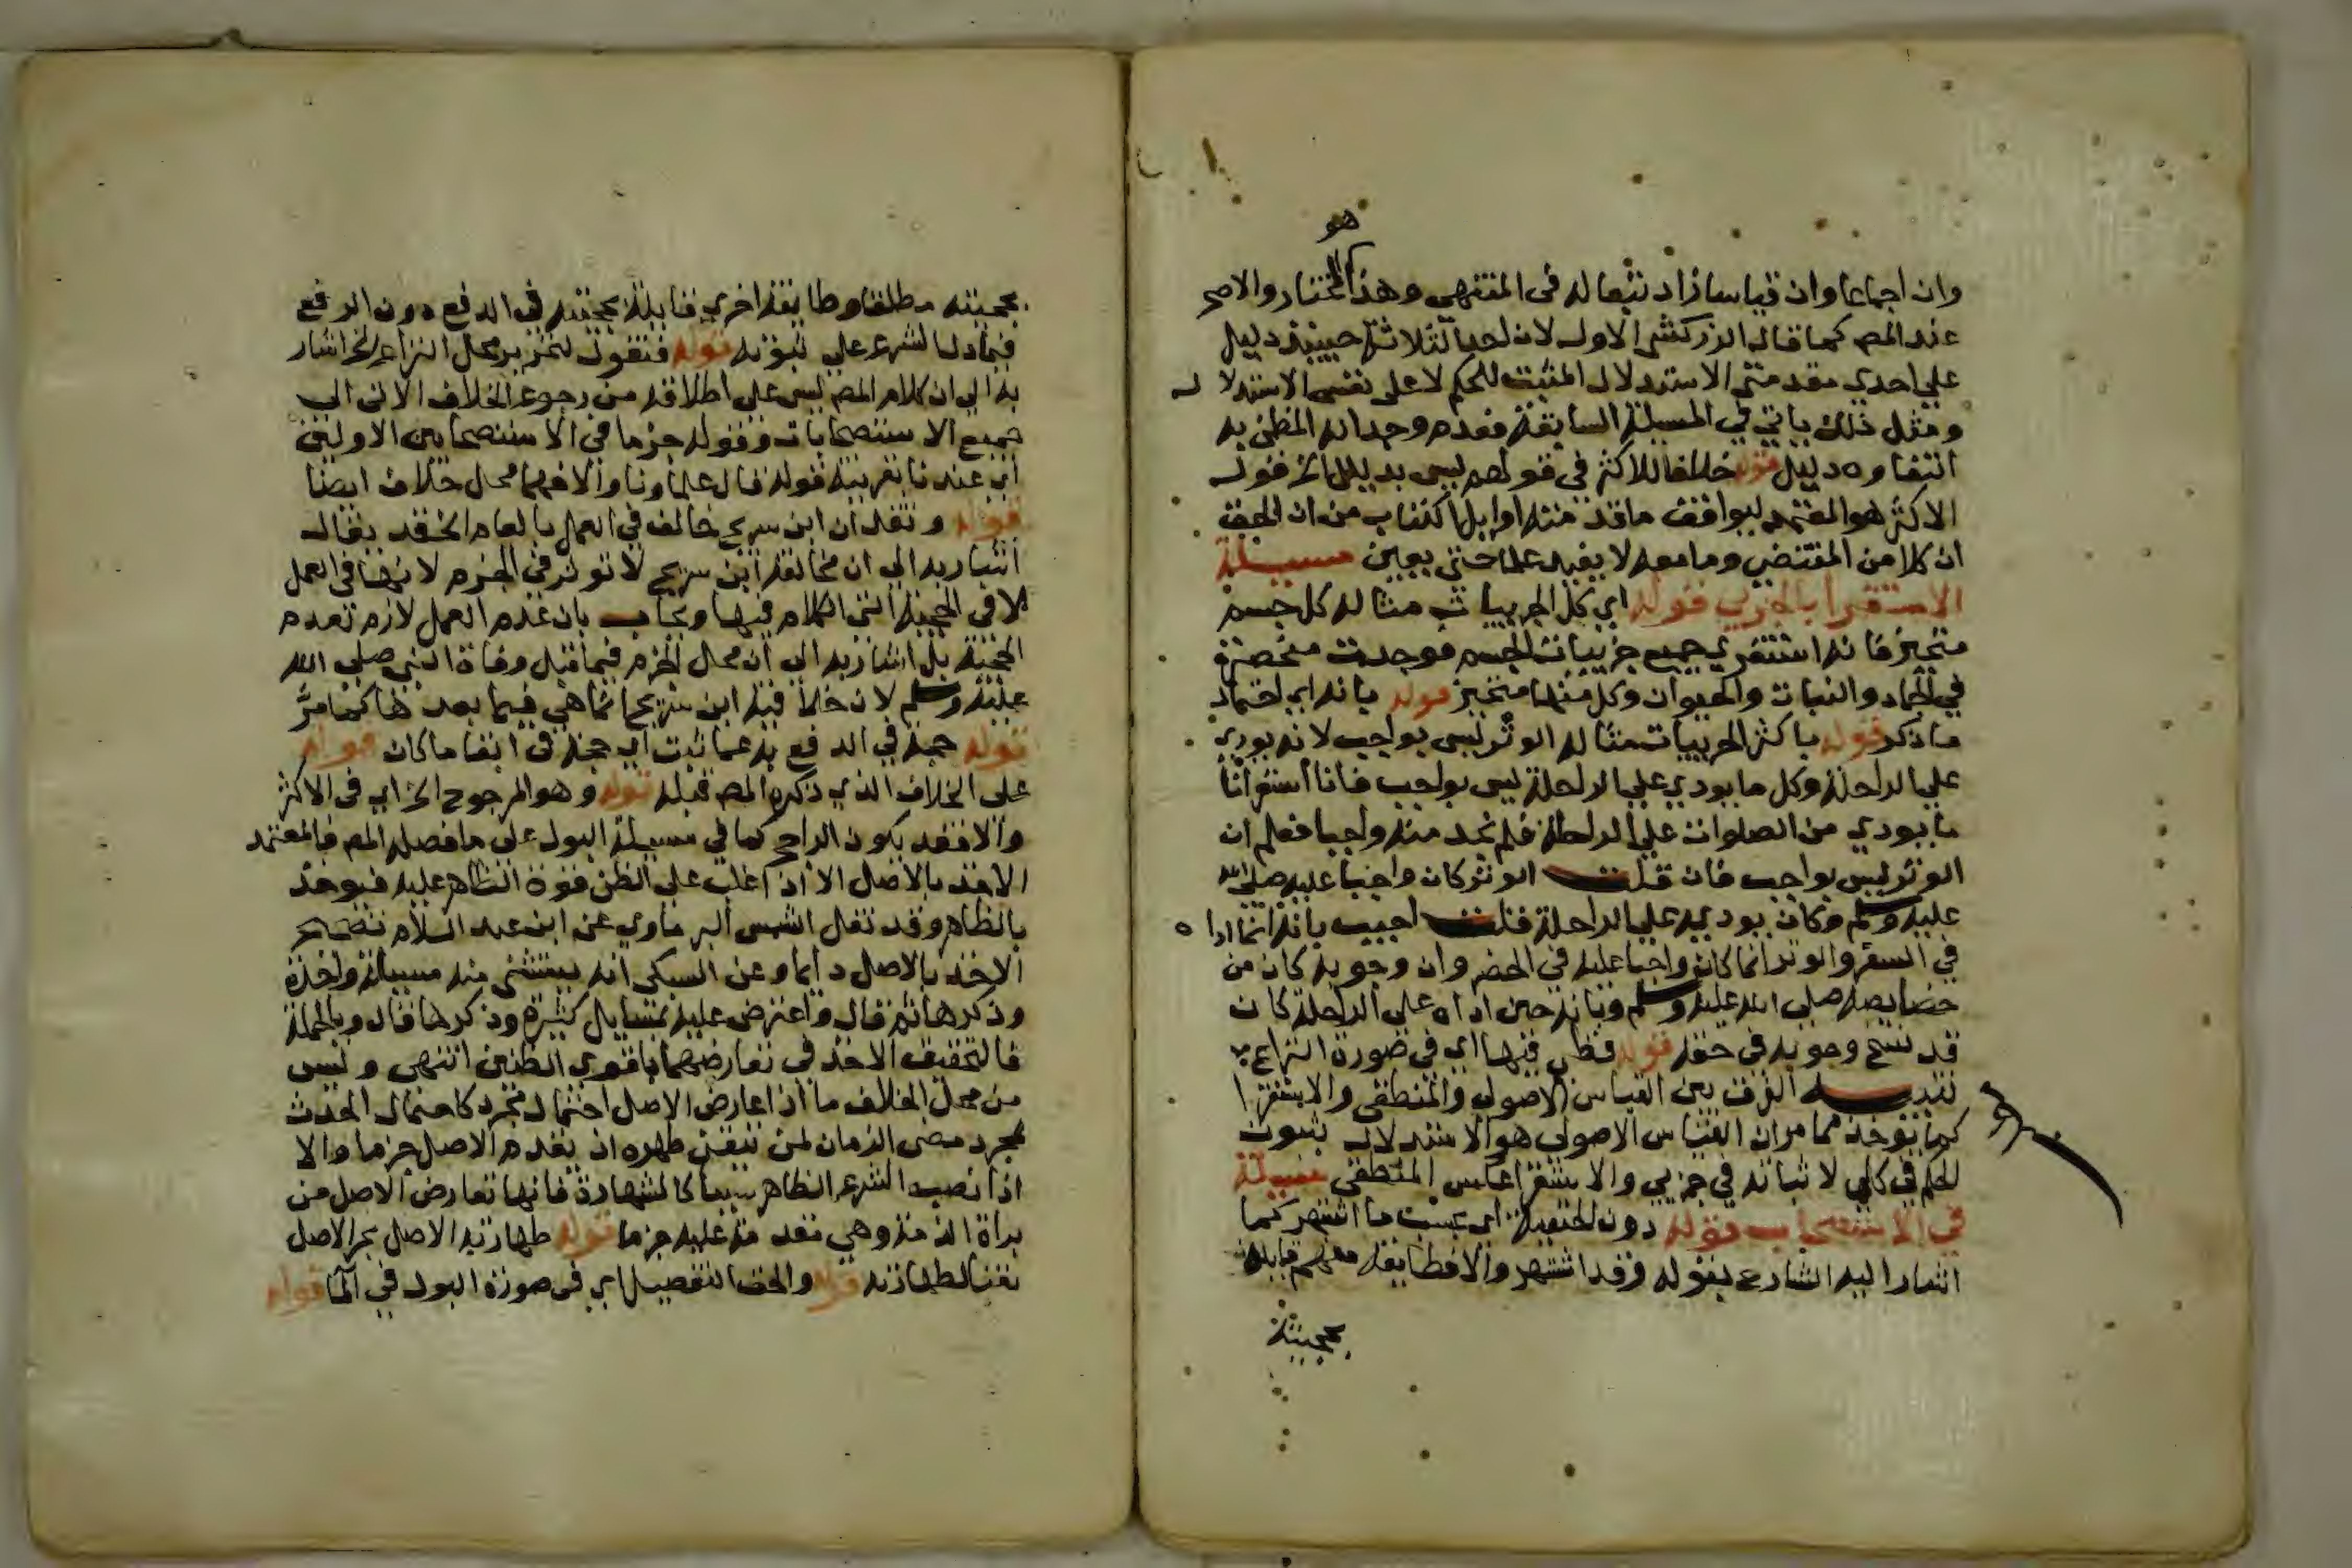 هو
وان اجماعا وان قياسا زاد تبعا له في المنتهي وهذا المختار والاصح
عند المص كما قاله الزركشي الاول لان احد الثلاثة حينيذ دليل
علي احدي مقدمتي الاستدلال المثبت للحكم لا على نفس الاستدلال
ومثل ذلك ياتي في المسيلة السابقة فعدم وجدانه المظني به
انتفاوه دليل قوله خلافا للاكثر في قولهم ليس بدليل الخ فقول
الاكثر هو المعتمد ليوافق ما قدمته اوايل الكتاب من ان المحقق
ان كلا من المقتضي وما معه لا يفيد علما حتي يعين مسيلة
الاستقرا بالجزيي قوله اي كل الجزييات مثاله كل جسم
متحيز فانه استقري جميع جزييات الجسم فوجدت منحصرة
في الجماد والنبات والحيوان وكل منها متحيز قوله بانه اي احتمال
ما ذكر قوله باكثر الجزييات مثاله الوتر ليس بواجب لانه يودي
علي الراحلة وكل ما يودي علي الراحلة ليس بواجب فانا استقرانا
ما يودي من الصلوات علي الراحلة فلم نجد منه واجبا فعلم ان
الوتر ليس بواجب فان قلت الوتر كان واجبا عليه صلى الله
عليه وسلم وكان يوديه علي الراحلة قلت اجيب بانه انما اداه
في السفر والوتر انما كان واجبا عليه في الحضر وان وجوبه كان من
خصايصه صلي الله عليه وسلم وبانه حين اداه علي الراحلة كان
قد نسخ وجوبه في حقه قوله قطي فيها اي في صورة النزاع
تنبيه الفرق بين القياس الاصولي والمنطقي والاستقرا
كما يوخذ مما مر ان القياس الاصولي هو الاستدلال بثبوت
الحكم في كلي لاثباته في جزيي والاستقرا عكس المنطقي مسيلة
في الاستصحاب قوله دون الحنفية اي بحسب ما اشتهر كما
اشار اليه الشارع بقوله وقد اشتهر والا فطايفة منهم قايلة
بحجيته
بحجيته مطلقا وطايفة اخري قايلة بحجيته في الدفع دون الرفع
فيما دل الشرع علي ثبوته قوله فنقول لتحرير محل النزاع الخ اشار
به الي ان كلام المص ليس علي اطلاقه من رجوع الخلاف الاتي الي
جميع الاستصحابات وقوله جزما في الاستصحابين الاولين
اي عندنا بقرينة قوله قال علماونا والا فهما محل خلاف ايضا
قوله وتقدم ان ابن سريج خالف في العمل بالعام الخ قد يقال
اشار به الي ان مخالفة ابن سريج لا توثر في الجزم لانها في العمل
لا في الحجية التي الكلام فيها ويجاب بان عدم العمل لازم لعدم
الحجية بل اشار به الي ان محل الجزم فيما قبل وفاة النبي صلي الله
عليه وسلم لان خلاف ابن سريج انما هي فيما بعدها كما مر
قوله حجة في الدفع به عما ثبت اي حجة في ابقا ما كان قوله
علي الخلاف الذي ذكره المص قبله قوله وهو المرجوح الخ اي في الاكثر
والا فقد يكون الراجح كما في مسيلة البول علي ما فصله المص فالمعتمد
الاخذ بالاصل الا اذا غلب علي الظن قوة الظاهر عليه فيوخذ
بالظاهر وقد نقل الشمس البرماوي عن ابن عبد السلام تصحيح
الاخذ بالاصل دايما وعن السبكي انه يستثني منه مسيلة واحدة
وذكرها ثم قال واعترض عليه بمسايل كثيرة وذكرها قال وبالجملة
فالتحقيق الاخذ في تعارضهما باقوي الظنين انتهي وليس
من محل الخلاف ما اذا عارض الاصل احتمال مجرد كاحتمال الحدث
بمجرد مضي الزمان لمن تيقن طهره اذ يقدم الاصل جزما والا
اذا نصب الشرع الظاهر سببا كالشهادة فانها تعارض الاصل من
براة الذمة وهي مقدمة عليه جزما قوله طهارته الاصل بجر الاصل
نعتا لطهارته قوله والحق التفصيل اي في صورة البول في الما قوله